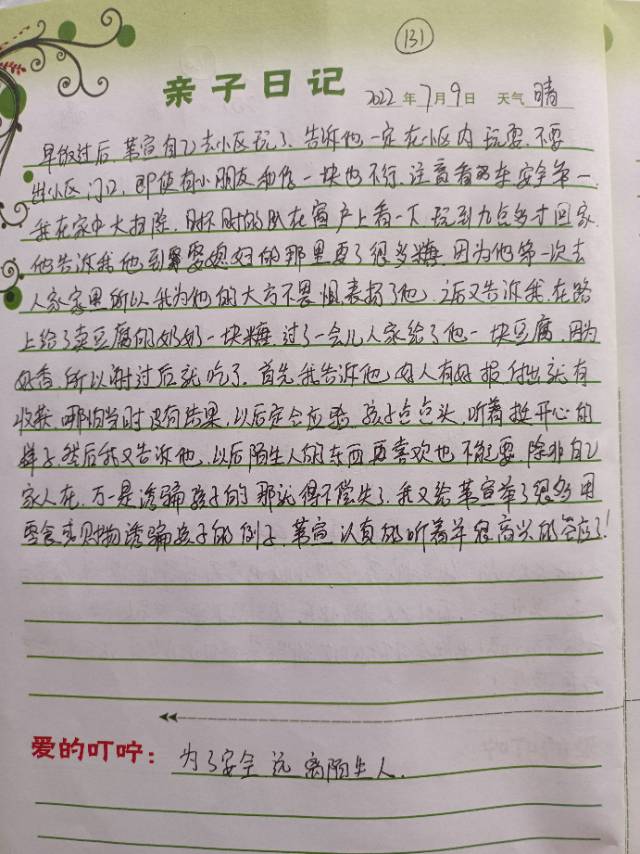 131
亲子日记 2022年7月9日 天气 晴
早饭过后，革宣自己去小区玩了、告诉他一定在小区内玩耍、不要
出小区门口，即使有小朋友和你一块也不行、注意看路车安全第一、
我在家中大扫除，时不时的趴在窗户上看一下，玩到九点多才回家、
他告诉我他到婆婆媳妇的那里要了很多糖、因为他第一次去
人家家里所以我为他的大方不畏惧表扬了他、之后又告诉我、在路
上给了卖豆腐的奶奶一块糖、过了一会儿人家给了他一块豆腐、因为
好香、所以谢过后就吃了、首先我告诉他好人有好报付出就有
收获、哪怕当时没有结果、以后定会应验、孩子点点头、听着挺开心的
样子、然后我又告诉他、以后陌生人的东西再喜欢也不能要除非自己
家人在、万一是诱骗孩子的那就得不偿失了、我又给革宣举了很多用
零食或购物诱骗孩子的例子、革宣认真的听着并很高兴的答应了！
爱的叮咛： 为了安全远离陌生人.